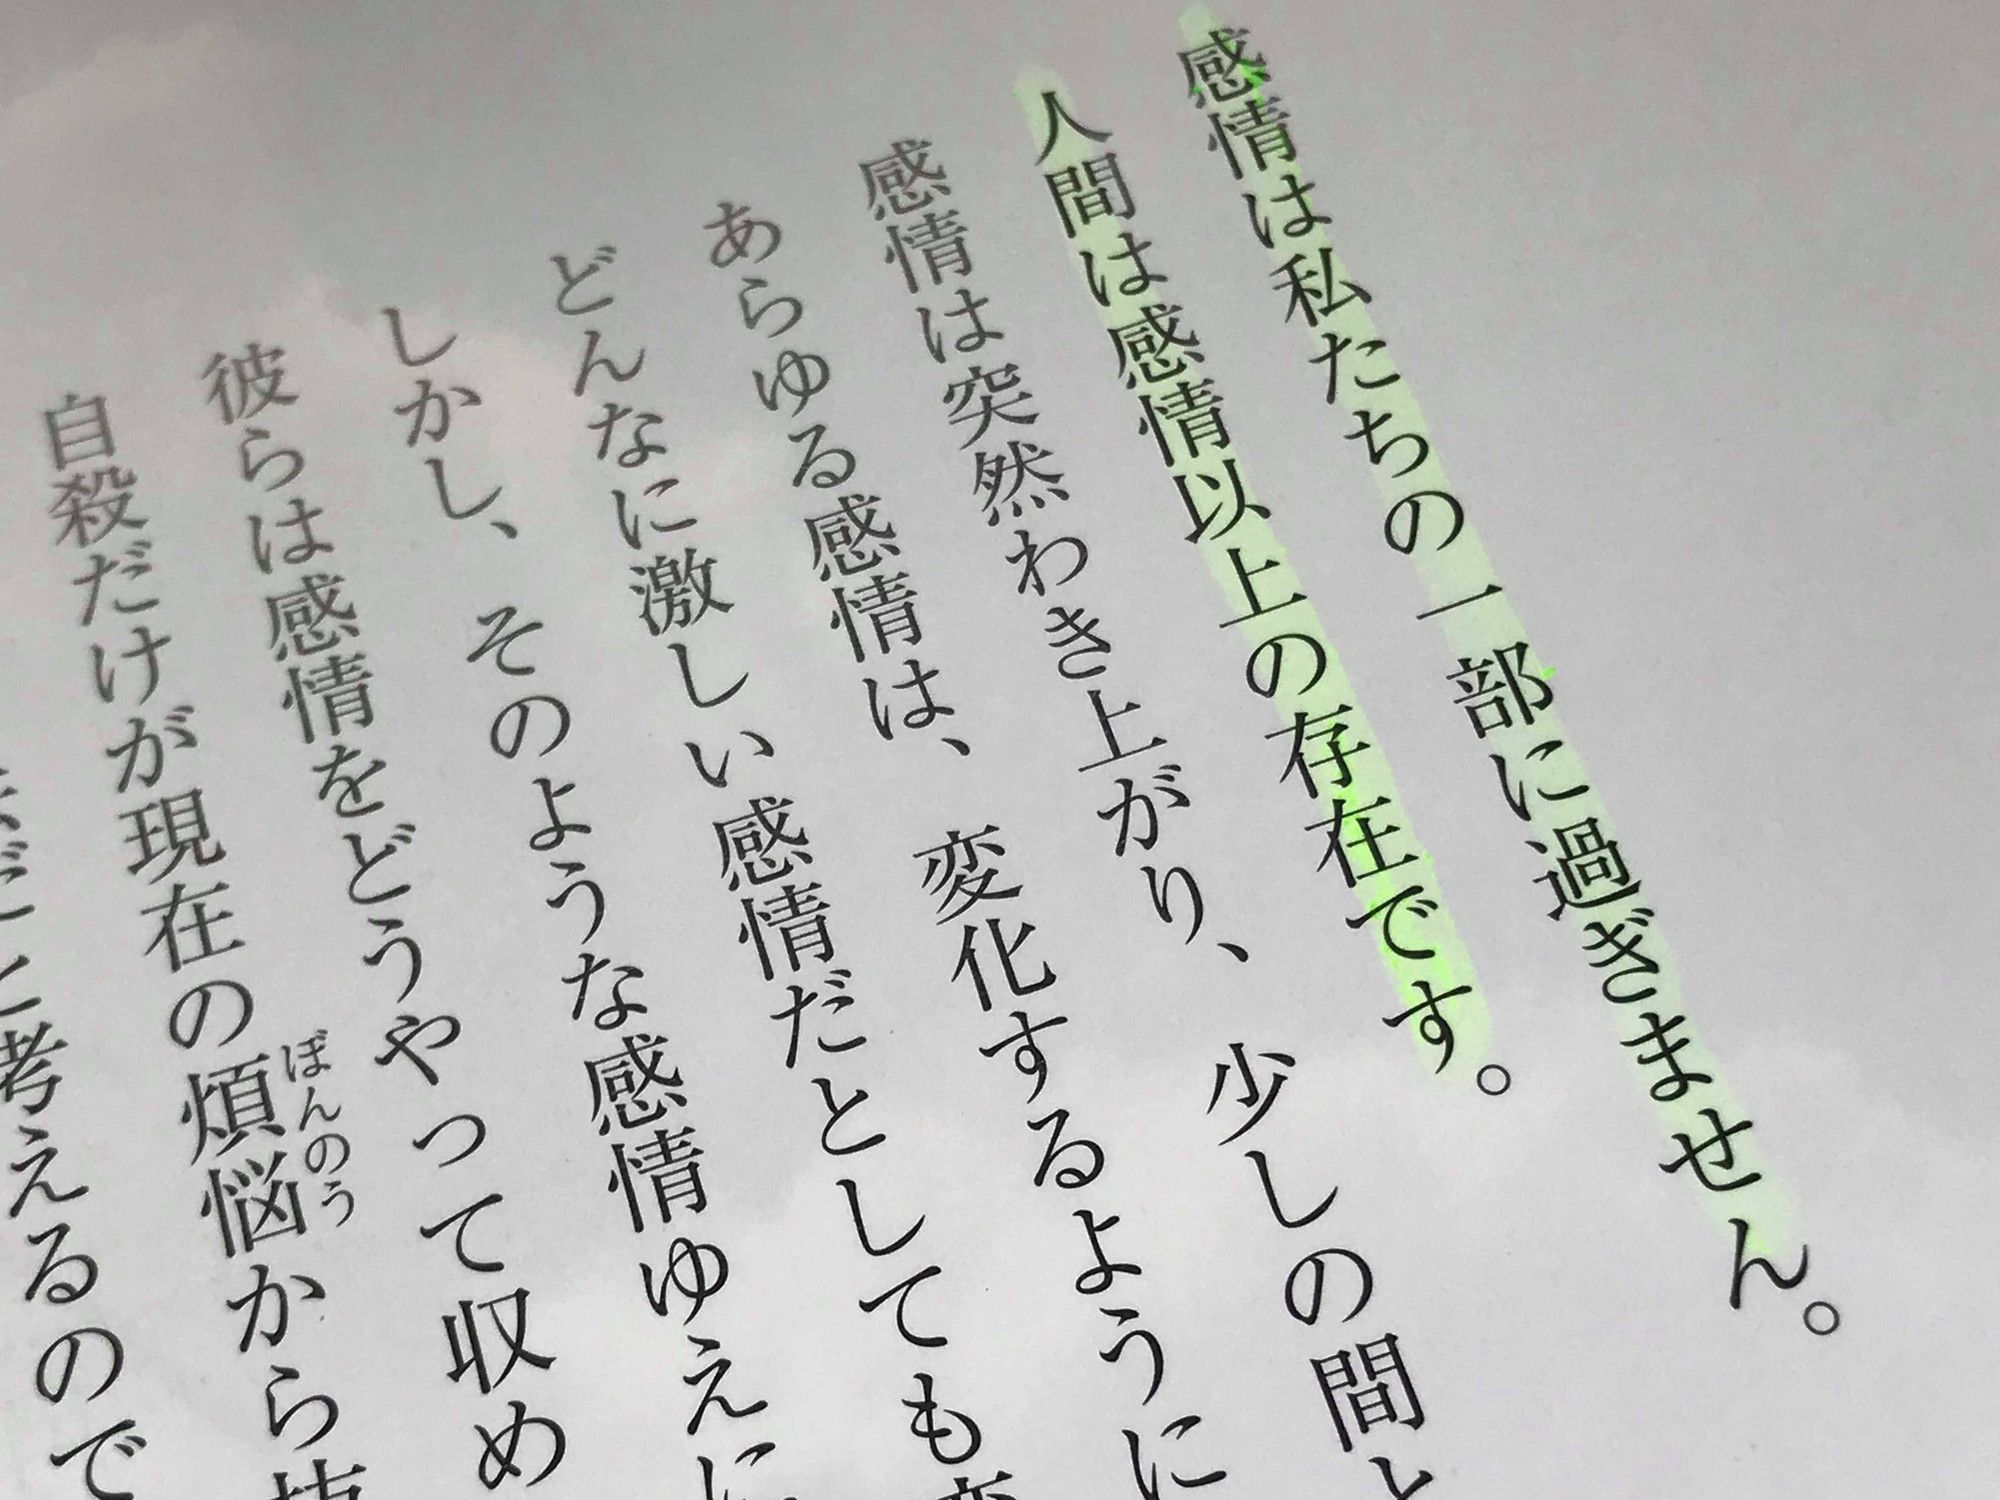 感情は私たちの一部に過ぎません。
人間は感情以上の存在です。
感情は突然わき上がり、少しの間と
あらゆる感情は、変化するように
どんなに激しい感情だとしても変
しかし、そのような感情ゆえに
彼らは感情をどうやって収め
自殺だけが現在の煩悩から抜
ぼんのう
だと考えるので